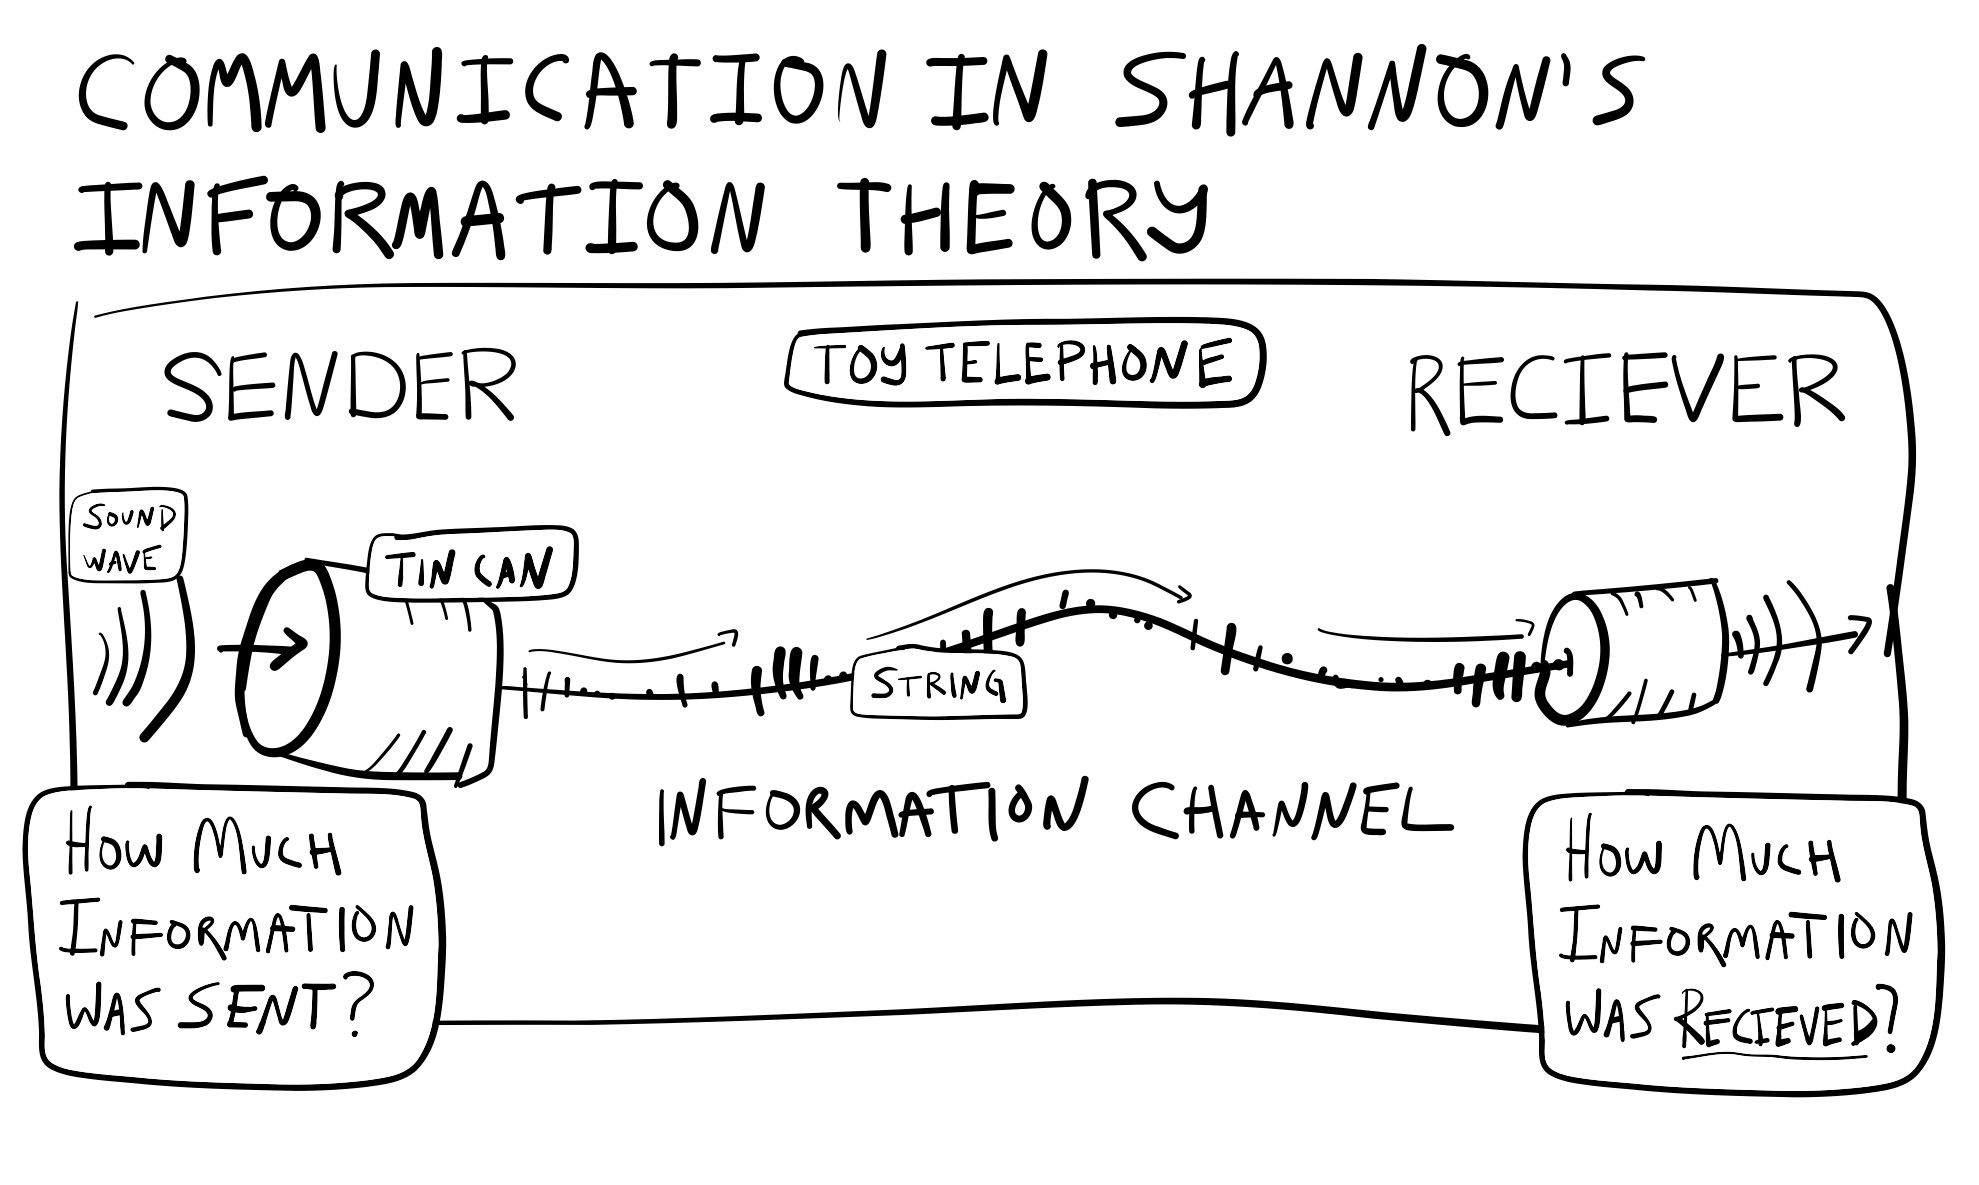 COMMUNICATION IN SHANNON'S
INFORMATION THEORY
SENDER
TOY TELEPHONE
RECIEVER
SOUND
WAVE
TIN CAN
STRING
INFORMATION CHANNEL
HOW MUCH
INFORMATION
WAS SENT?
HOW MUCH
INFORMATION
WAS RECIEVED?